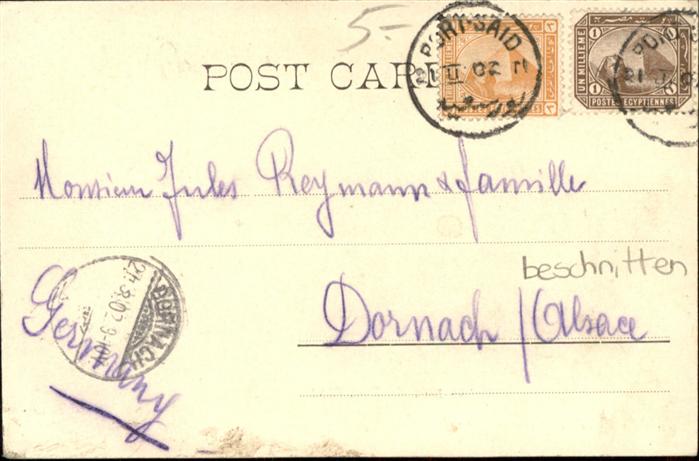 5.-
POST CARD
PORT-SAID
21 II 02
UN MILLIEME
POSTES EGYPTIENNES
1 1
Monsieur Jules Reymann & famille
beschnitten
Dornach / Alsace
DORNACH
Germany